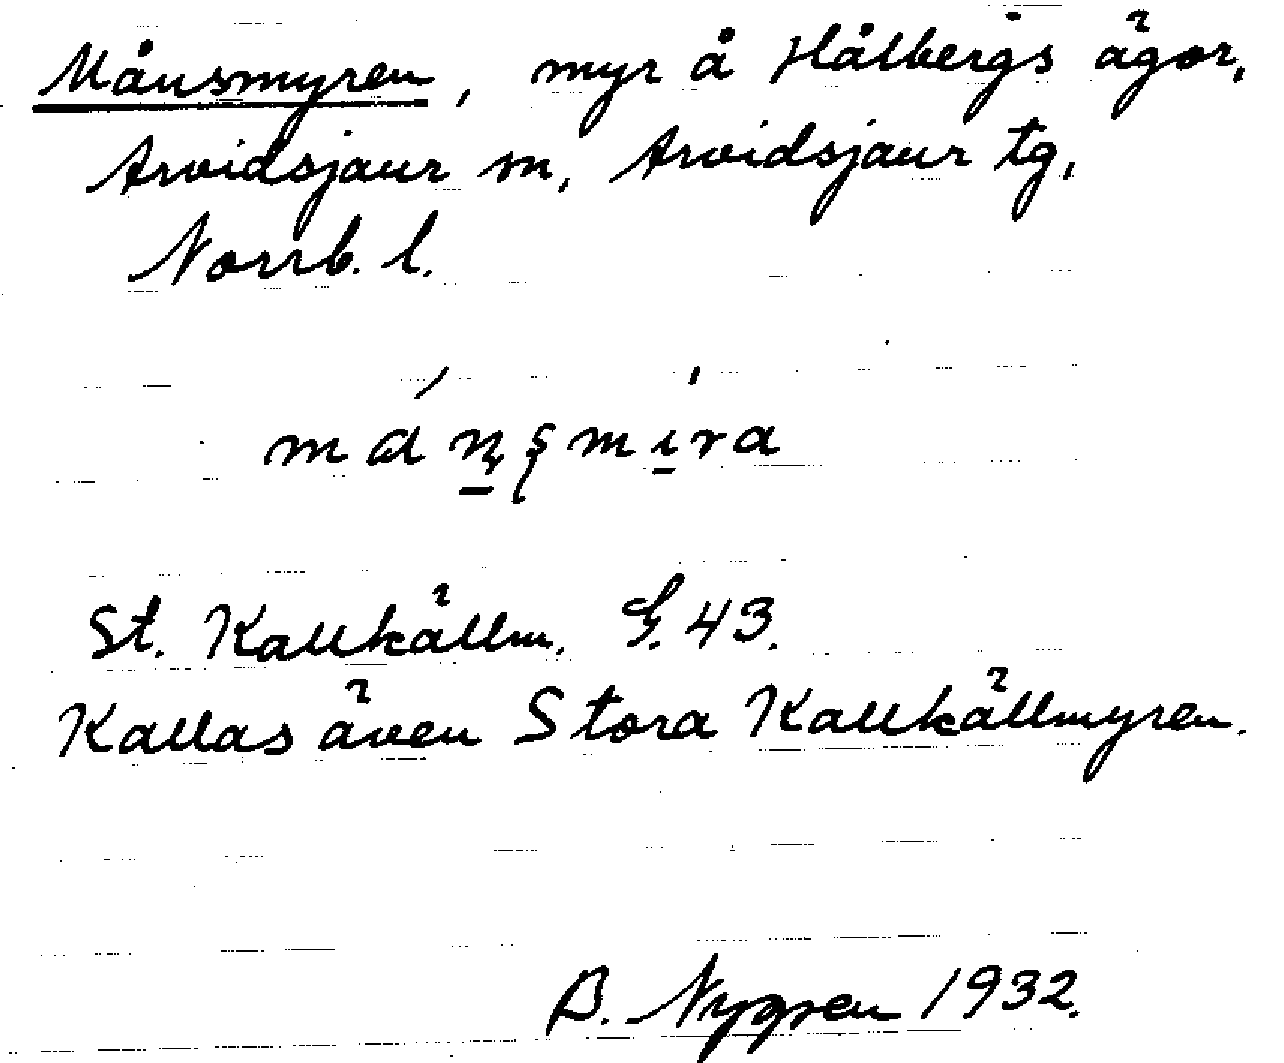 Månsmyren, myr å Hålbergs ägor,
Arvidsjaur sn, Arvidsjaur tg,
Norrb. l.
St. Kallkällm. G. 43.
Kallas även Stora Kallkällmyren.
B. Nygren 1932.